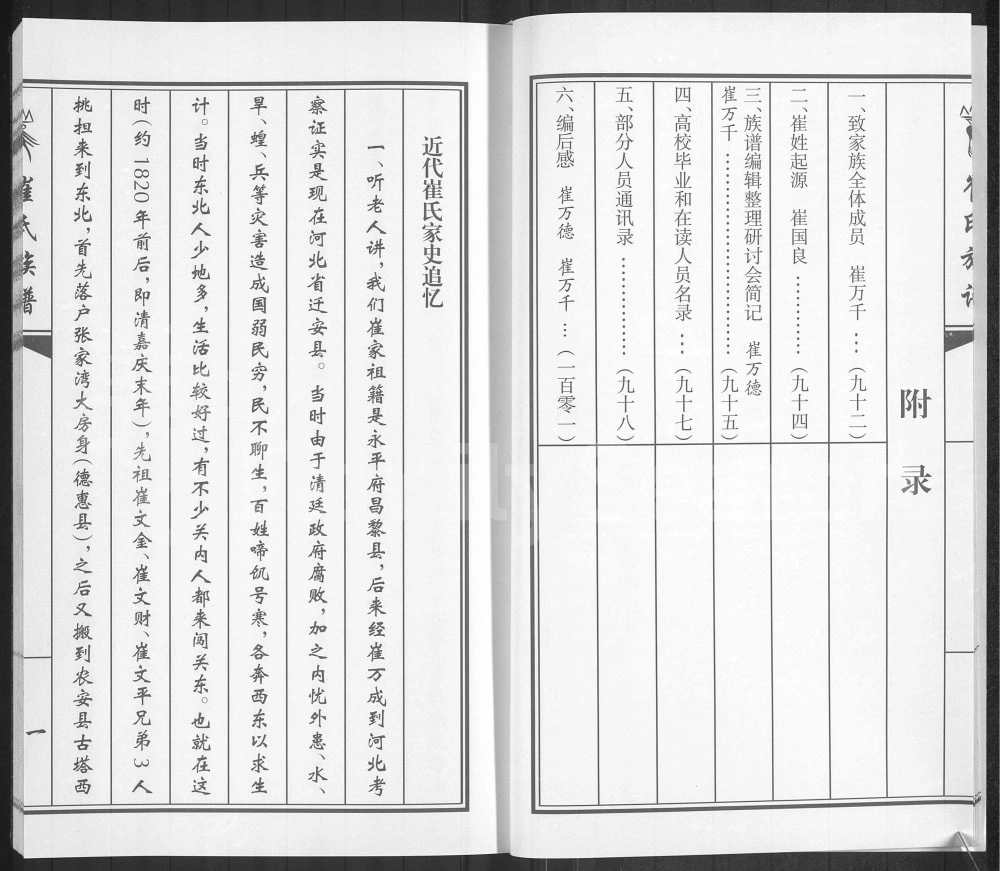 附录
一、致家族全体成员 崔万千…(九十二)
二、崔姓起源 崔国良…………(九十四)
三、族谱编辑整理研讨会简记 崔万德
崔万千………………………(九十五)
四、高校毕业和在读人员名录…(九十七)
五、部分人员通讯录……………(九十八)
六、编后感 崔万德 崔万千…(一百零一)
近代崔氏家史追忆
一、听老人讲，我们崔家祖籍是永平府昌黎县，后来经崔万成到河北考
察证实是现在河北省迁安县。当时由于清廷政府腐败，加之内忧外患、水、
旱、蝗、兵等灾害造成国弱民穷，民不聊生，百姓啼饥号寒，各奔西东以求生
计。当时东北人少地多，生活比较好过，有不少关内人都来闯关东。也就在这
时(约1820年前后，即清嘉庆末年)，先祖崔文金、崔文财、崔文平兄弟3人
挑担来到东北，首先落户张家湾大房身(德惠县)，之后又搬到农安县古塔西
崔氏族谱
一